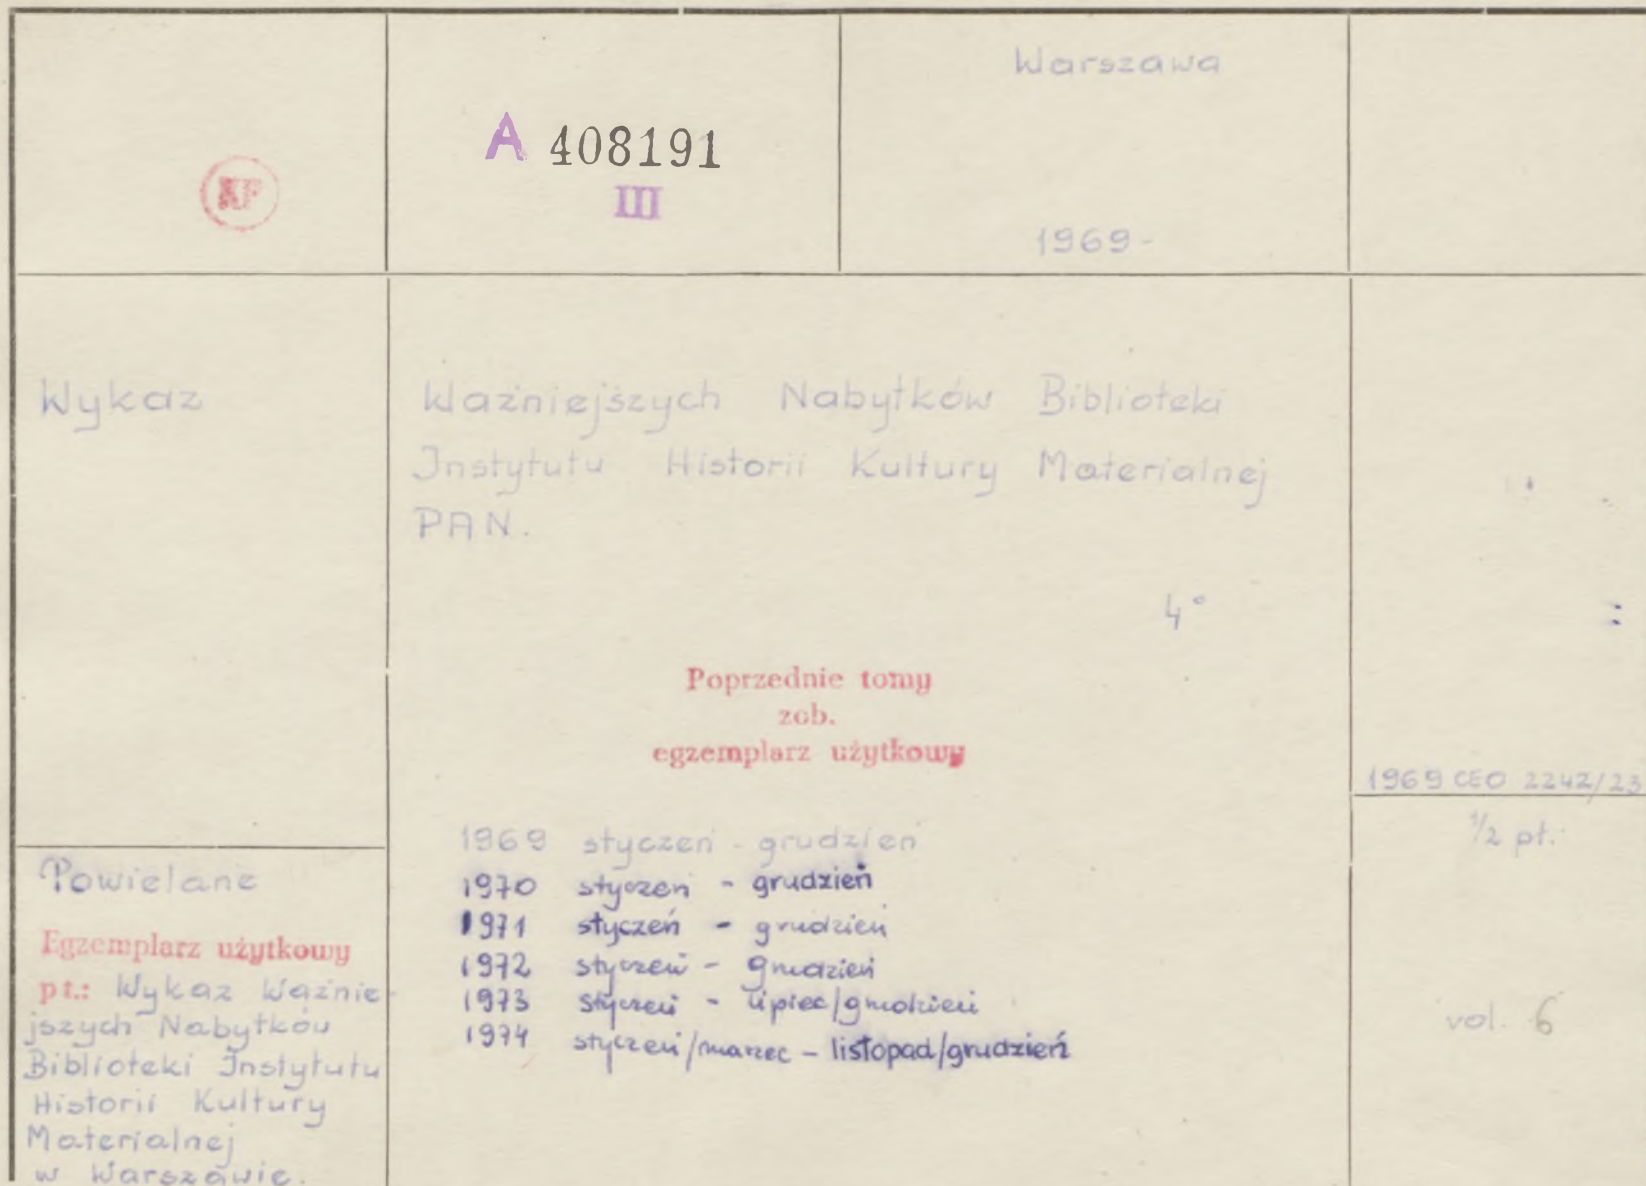 Warszawa
A 408191
KF
III
1969-
Wykaz
Ważniejszych Nabytków Biblioteki
Instytutu Historii Kultury Materialnej
PAN.
4°
Poprzednie tomy
zob.
egzemplarz użytkowy
1969 CEO 2242/23
1969 styczeń - grudzień
1970 styczeń - grudzień
1971 styczeń - grudzień
1972 styczeń - grudzień
1973 styczeń - lipiec/grudzień
1974 styczeń/marzec - listopad/grudzień
1/2 pł.
vol. 6
Powielane
Egzemplarz użytkowy
pt.: Wykaz Ważnie
jszych Nabytków
Biblioteki Instytutu
Historii Kultury
Materialnej
w Warszawie.